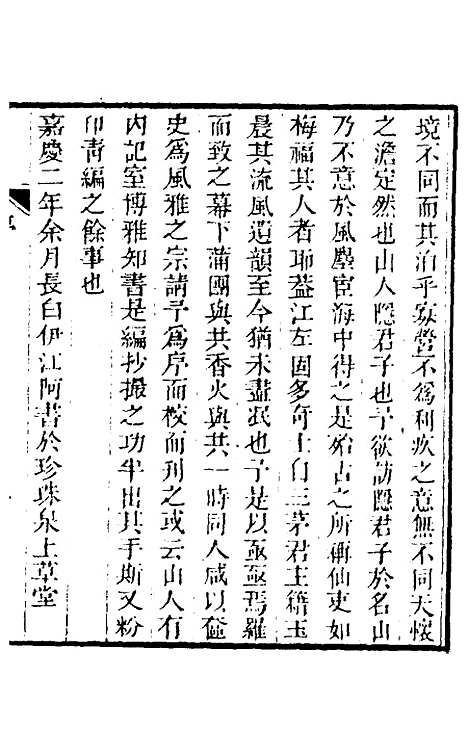 境不同而其泊乎寡營不爲利疚之意無不同天懷
之澹定然也山人隱君子也予欲訪隱君子於名山
乃不意於風塵宦海中得之是殆古之所稱仙吏如
梅福其人者耶葢江左固多奇士自三茅君主籍玉
晨其流風遺韻至今猶未盡泯也予是以亟亟焉羅
而致之幕下蒲團與共香火與共一時同人咸以
史爲風雅之宗請予爲序而校而刊之或云山人有
内記室博雅知書是編抄撮之功半出其手斯又粉
印青編之餘事也
嘉慶二年余月長白伊江阿書於珍珠泉上草堂